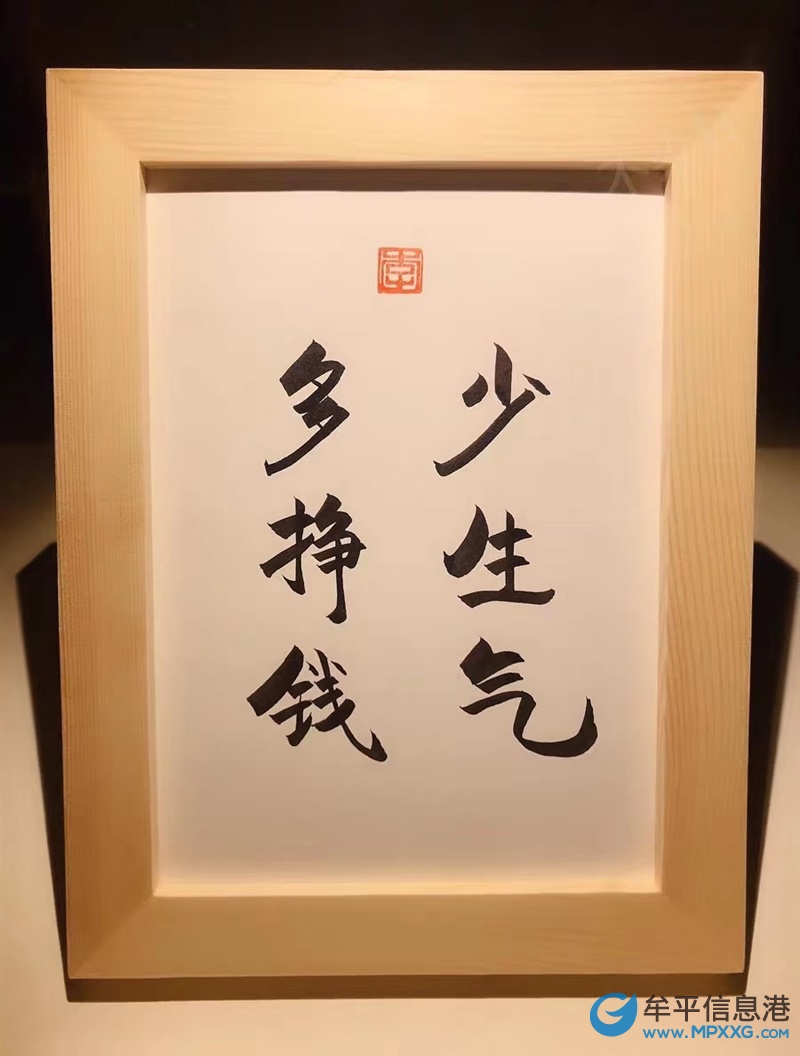 少生气
多挣钱
牟平信息港
www.MPXXG.com